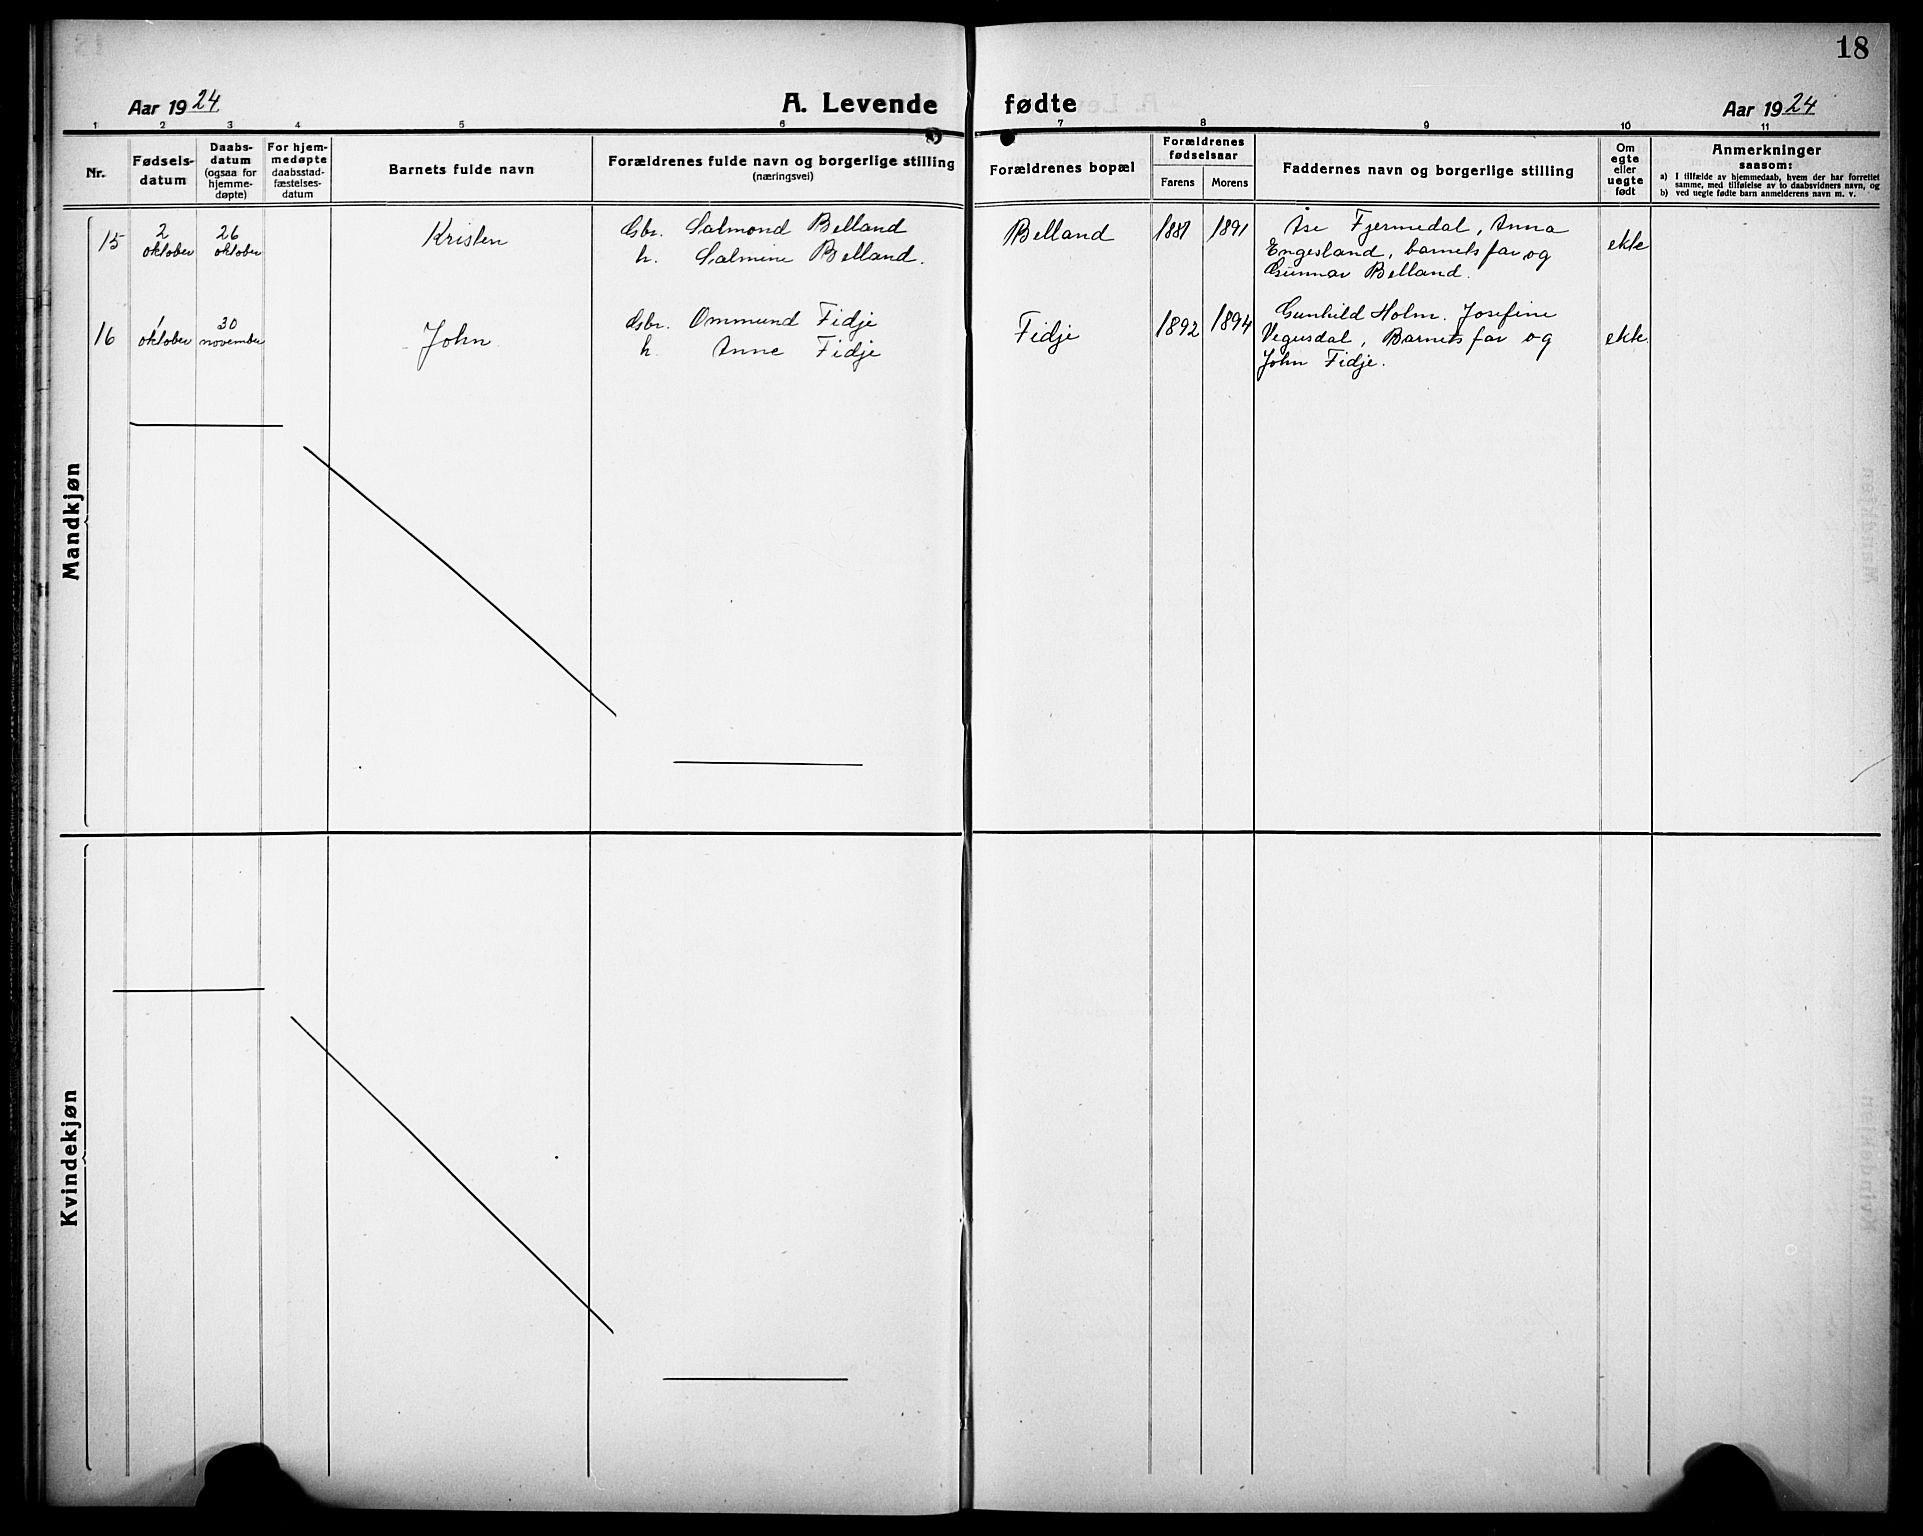 18
Aar 1924 A. Levende fødte Aar 1924
1 2 3 4 5 6 7 8 9 10 11
Nr.
Fødsels-
datum
Daabs-
datum
(ogsaa for
hjemme-
døpte)
For hjem-
medøpte
daabsstad-
fæstelses-
datum
Barnets fulde navn
Forældrenes fulde navn og borgerlige stilling
(næringsvei)
Forældrenes bopæl
Forældrenes
fødselsaar
Farens Morens
Faddernes navn og borgerlige stilling
Om
egte
eller
uegte
født
Anmerkninger
saasom:
a) I tilfælde av hjemmedaab, hvem der har forrettet
samme, med tilføielse av to daabsvidners navn, og
b) ved uegte fødte barn anmelderens navn m. v.
Mandkjøn
15
2
oktober
26
oktober
Kristen
Gbr. Salmond Belland
h. Salmine Belland.
Belland
1881 1891
Åse Fjermedal, Anna
Engesland, barnets far og
Gunnar Belland.
ekte
16
1
oktober
30
november
John
Gbr. Ommund Fidje
h. Anne Fidje
Fidje
1892 1894
Gunhild Holm. Josefine
Vegusdal, Barnets far og
John Fidje.
ekte.
Kvindekjøn